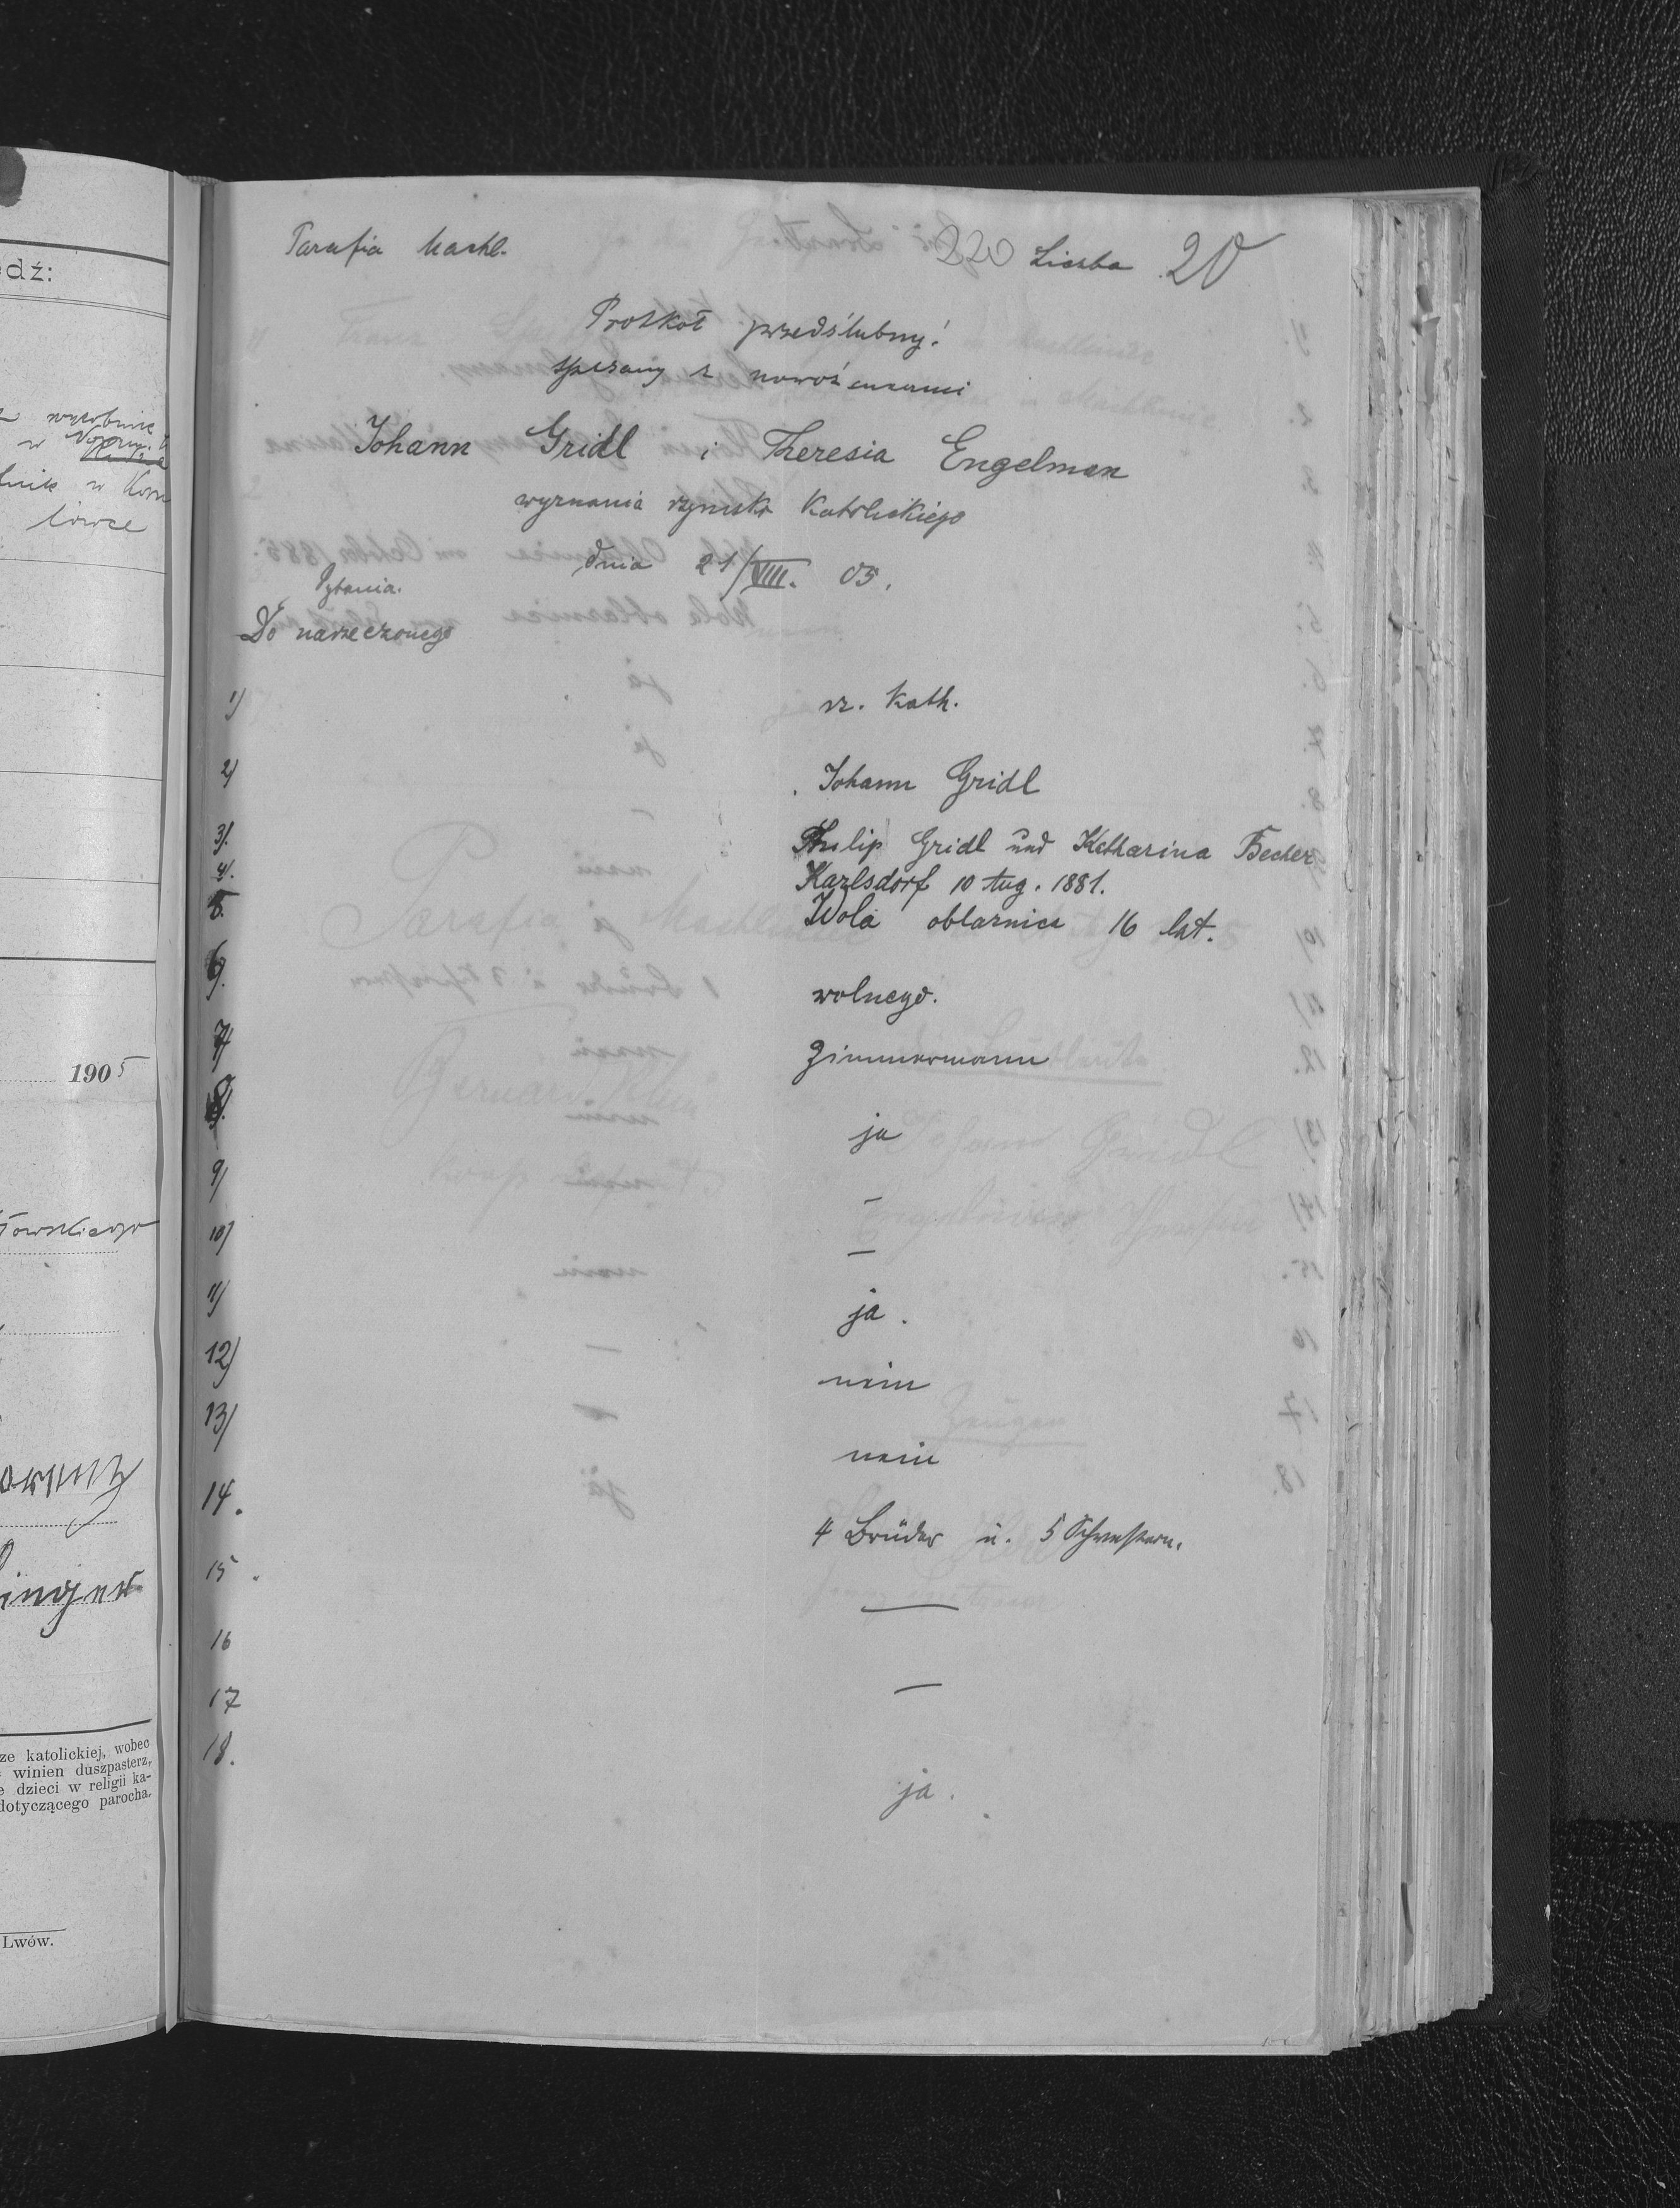 Parafia Machl. 220 Liczba 20
Protkoł przedślubny!
spisany z nowożeńcami
Johann Gridl i Theresia Engelman
wyznania rzymsko Katolickiego
dnia 21/VIII. 05.
Pytania.
Do narzeczonego
1) rz. Kath.
2) Johann Gridl
3). Philip Gridl und Katharina Becher
4. Karlsdorf 10 Aug. 1881.
5. Wola oblaznica 16 lat.
6). wolnego.
7) Zimmermann
8. ja
9) –
10) –
11) ja.
12) nein
13) nein
14. 4 Brüder u. 5 Schwestern.
15. —
16
17 —
18. ja.
edź:
wyrobnik
w
lówce
1905
Lwów.
ze katolickiej, wobec
winien duszpasterz,
e dzieci w religii ka-
dotyczącego parocha.